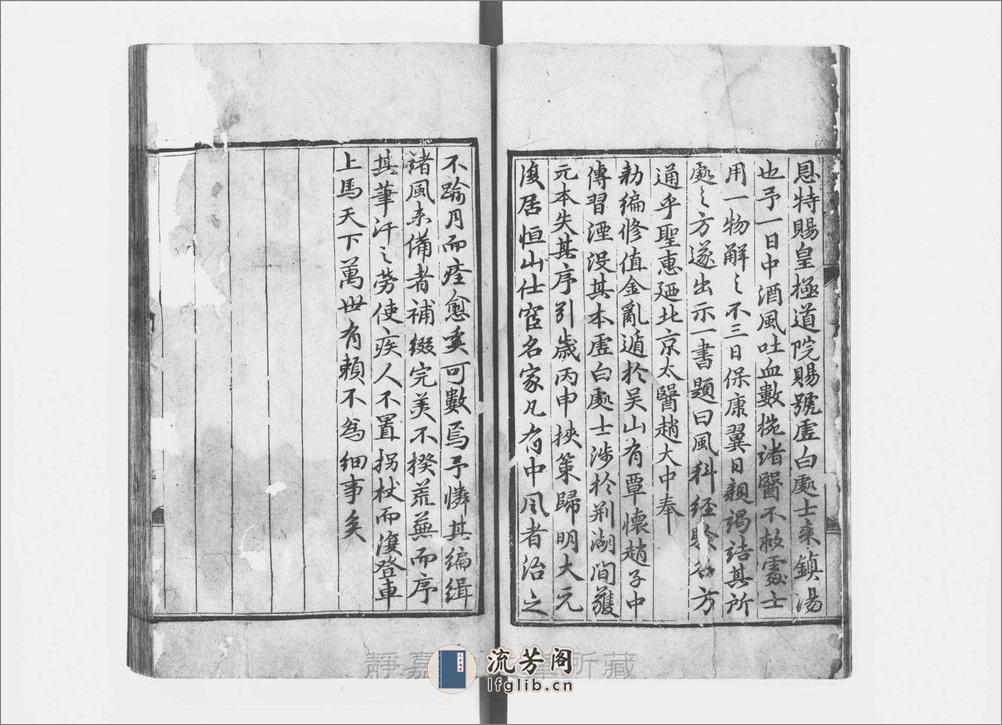 恩特賜皇極道院賜號虛白處士來鎮湯
也予一日中酒風吐血數椀諸醫不救處士
用一物解之不三日保康翼日親謁詰其所
處之方遂出示一書題曰風科經驗名方
通乎聖惠廼北京太醫趙大中奉
勑編修值金亂遁於吴山有覃懷趙子中
傳習湮没其本虛白處士涉於荆湖間獲
元本失其序引歲丙申挾策歸明大元
復居恒山仕宦名家凡有中風者治之
不踰月而痊愈奚可數焉予憐其編緝
諸風未備者補綴完美不揆荒蕪而序
其筆汗之勞使疾人不置拐杖而復登車
上馬天下萬世有賴不為細事矣
靜嘉 所藏
流芳阁
lfglib.cn